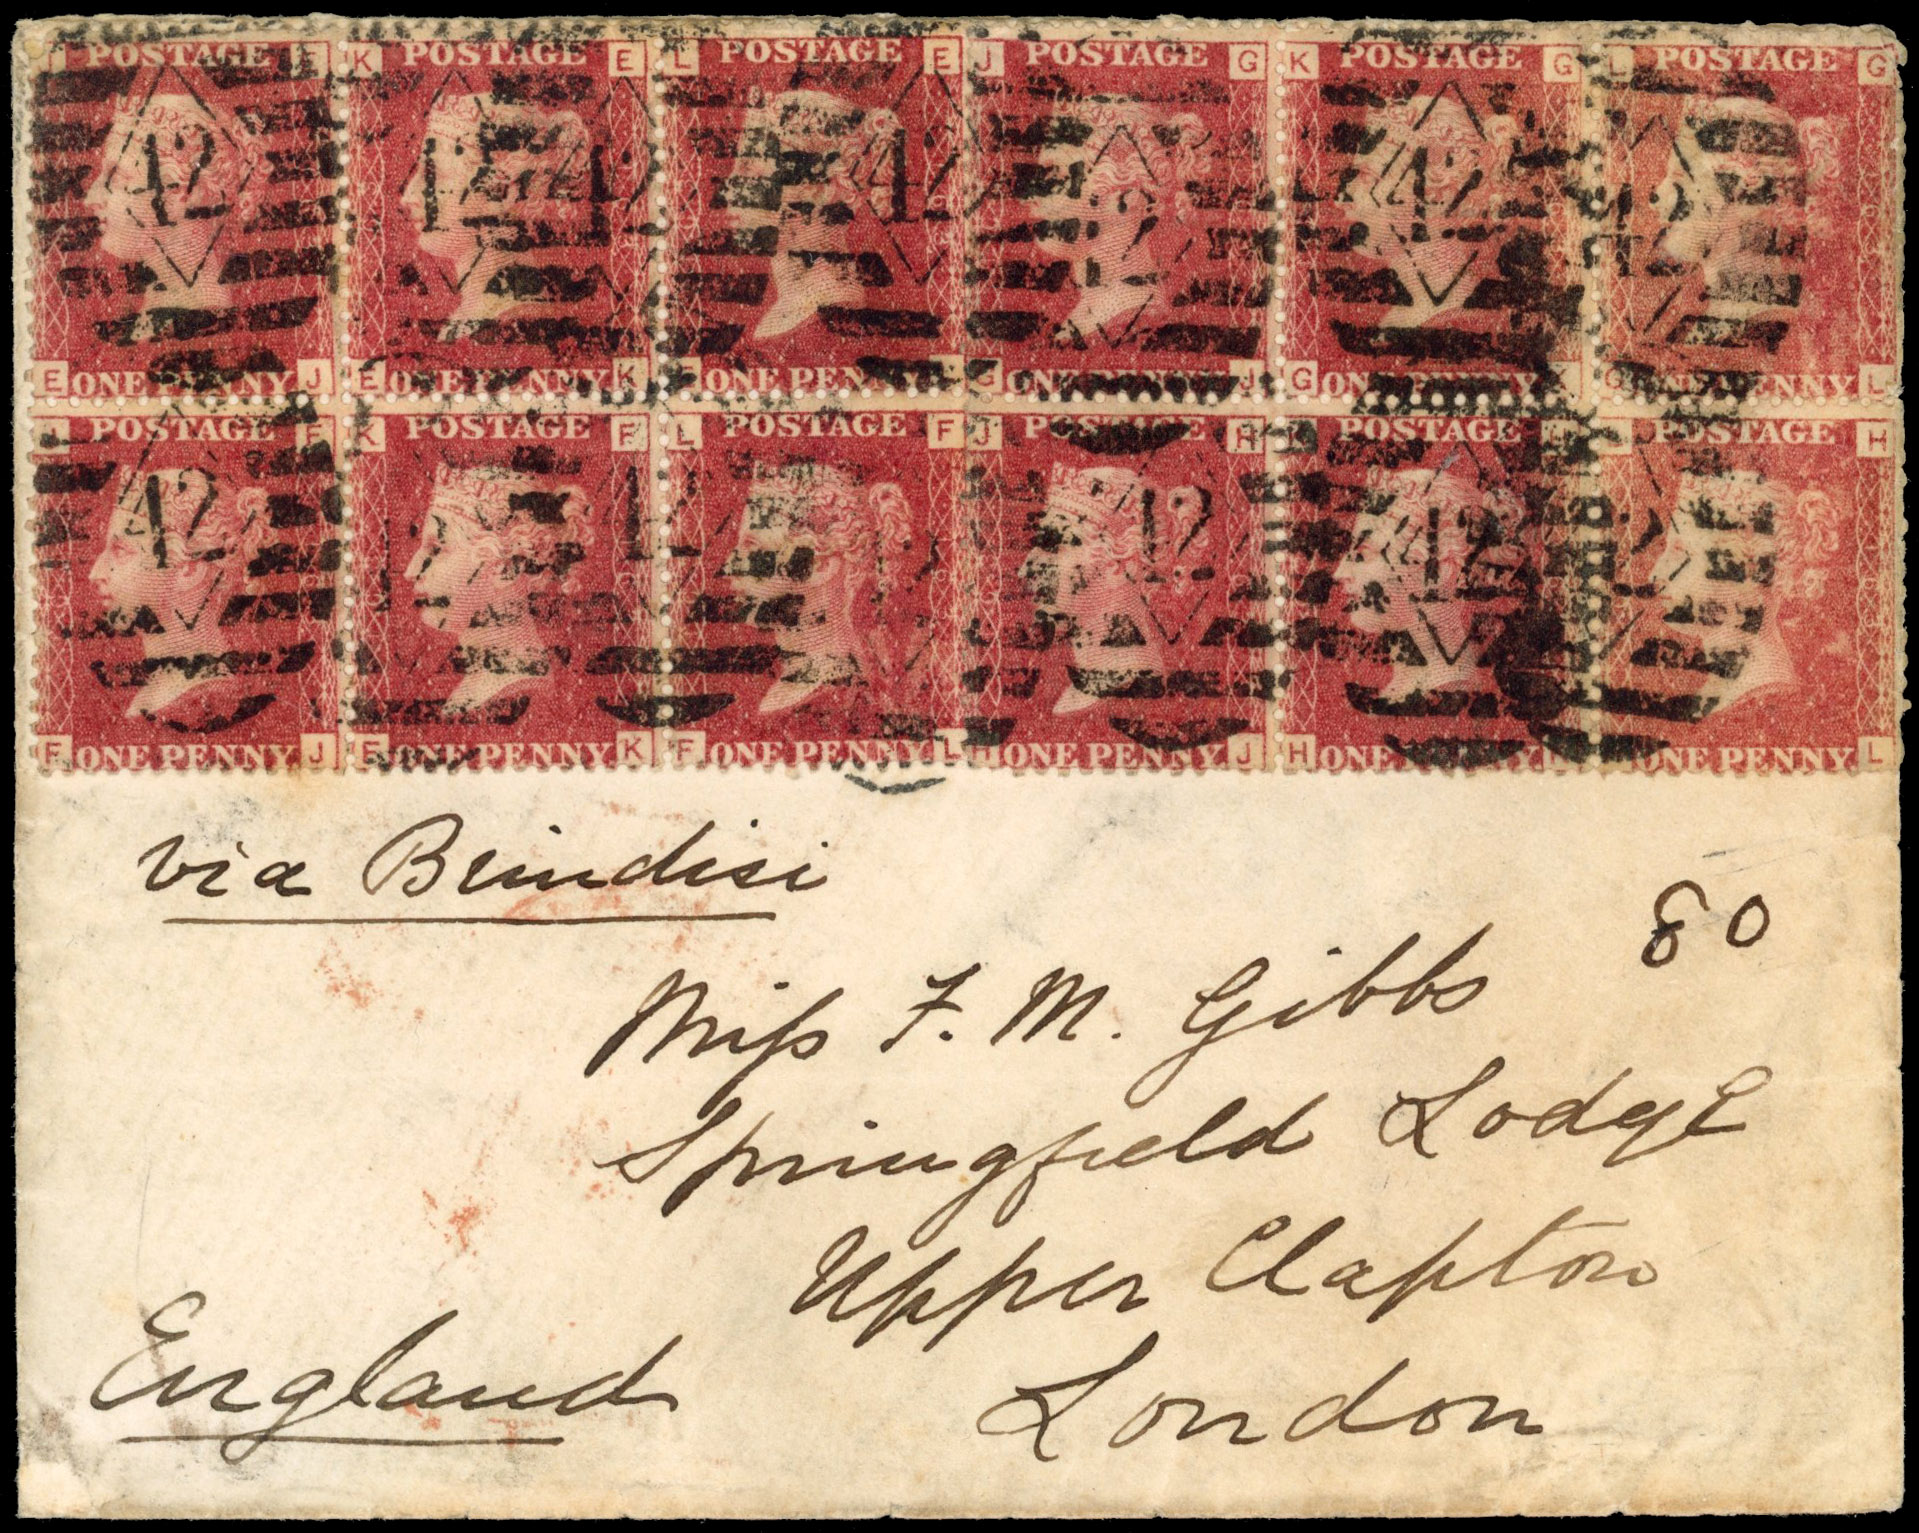 J POSTAGE E K POSTAGE E L POSTAGE E J POSTAGE G K POSTAGE G L POSTAGE G
42 42 42 42 2 42 42
E ONE PENNY J E ONE PENNY K E ONE PENNY G ONE PENNY J G ONE PENNY G ONE PENNY L
J POSTAGE F K POSTAGE F L POSTAGE F J POSTAGE H K POSTAGE H POSTAGE H
42 42 42 42
F ONE PENNY J F ONE PENNY K F ONE PENNY L H ONE PENNY J H ONE PENNY ONE PENNY L
via Brindisi
80
Miss F. M. Gibbs
Springfield Lodge
Upper Clapton
London
England